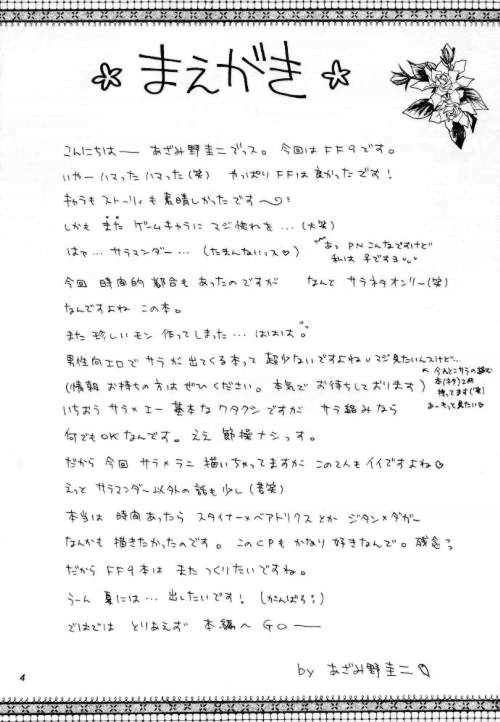 ☆ まえがき ☆
こんにちはー あざみ野圭二でっス。今回はFF9です。
いやーハマったハマった(笑) やっぱりFFは良かったです!
キャラもストーリィも素晴しかったです〜
しかも また ゲームキャラに マジ惚れを…(大笑)
はて… サラマンダー…(たまんないっス♡)
あっ PNこんなですけど
私は ♀ですヨ
今回 時間的都合もあったのですが なんと サラネタオンリー(笑)
なんですよね この本。
また 珍しいモン 作ってしまった… ははは。
男性向エロで サラが出てくる本って 超少ないですよねぃマジ見たいんスけど…
(情報 お持ちの方は ぜひください。本気で お待ちしております)
今んとこサラの絡む
本(ネタ)2冊
持ってます(笑)
あーもっと見たい
いちおう サラ×エー 基本な ワタクシですが サラ絡みなら
何でもOKなんです。ええ 節操ナシっす。
だから 今回 サラ×ラニ 描いちゃってますが この2人も イイですよね♡
えっと サラマンダー以外の話も少し(苦笑)
本当は 時間あったら スタイナー×ベアトリクス とか ジタン×ダガー
なんかも 描きたかったのです。 このCPも かなり 好きなんで。残念
だから FF9本は また つくりたいですね。
うーん 夏には… 出したいです!(がんばろ)
ではでは とりあえず 本編へ GOー
by あざみ野圭二
4